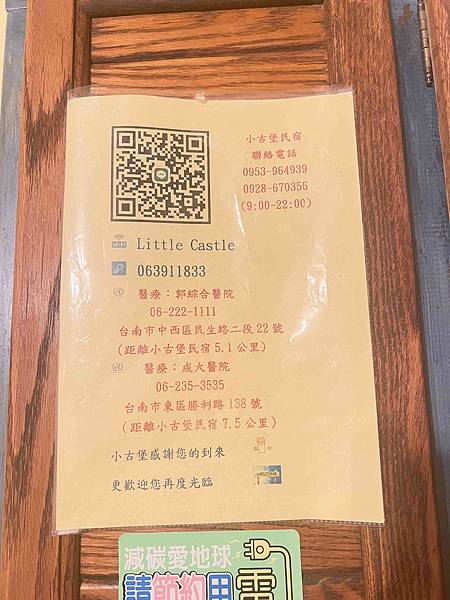 小古堡民宿
聯絡電話
0953-964939
0928-670356
(9:00-22:00)
WIFI Little Castle
063911833
醫療：郭綜合醫院
06-222-1111
台南市中西區民生路二段22號
(距離小古堡民宿5.1公里)
醫療：成大醫院
06-235-3535
台南市東區勝利路138號
(距離小古堡民宿7.5公里)
小古堡感謝您的到來
更歡迎您再度光臨
WELCOME
減碳愛地球
請節約用電